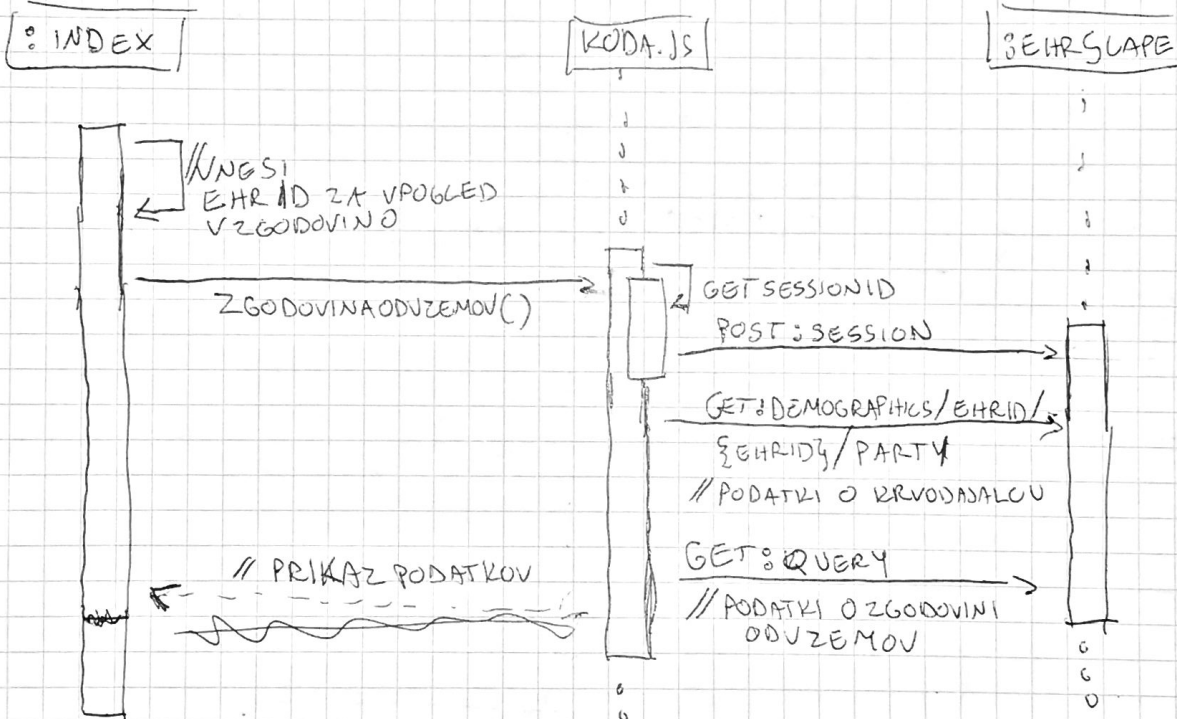 : INDEX
KODA.JS
:EHRSCAPE
//VNESI
EHR ID ZA VPOGLED
V ZGODOVINO
ZGODOVINAODVZEMOV()
GETSESSIONID
POST:SESSION
GET:DEMOGRAPHICS/EHRID/
{EHRID}/PARTY
//PODATKI O KRVODAJALCU
GET:QUERY
//PODATKI O ZGODOVINI
ODVZEMOV
// PRIKAZ PODATKOV